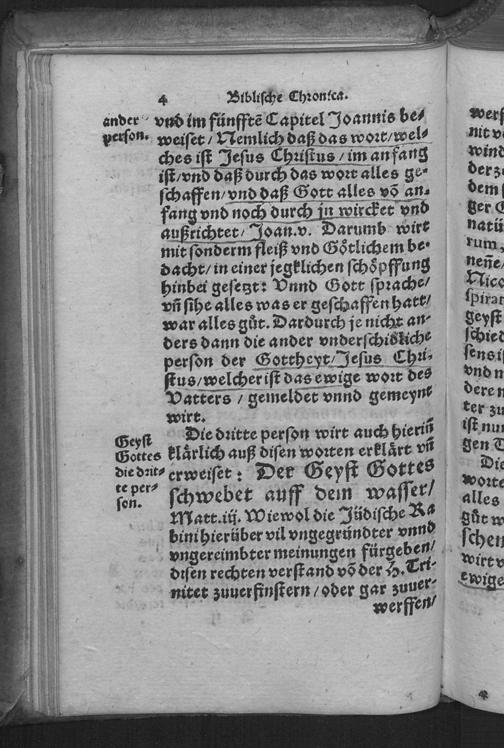 4 Biblische Chronica.
ander person.
vnd im fünfftē Capitel Joannis be-
weiset / Nemlich daß das wort / wel-
ches ist Jesus Christus / im anfang
ist / vnd daß durch das wort alles ge-
schaffen / vnd daß Gott alles vō an-
fang vnd noch durch jn wircket vnd
außrichtet / Joan.v. Darumb wirt
mit sonderm fleiß vnd Götlichem be-
dacht / in einer jegklichen schöpffung
hinbei gesetzt: Vnnd Gott sprache /
vñ sihe alles was er geschaffen hatt /
war alles gůt. Dardurch je nicht an-
ders dann die ander vnderschidliche
person der Gottheyt / Jesus Chri-
stus / welcher ist das ewige wort des
Vatters / gemeldet vnnd gemeynt
wirt.
Geyst
Gottes
die drit-
te per-
son.
Die dritte person wirt auch hieriñ
klärlich auß disen worten erklärt vñ
erweiset: Der Geyst Gottes
schwebet auff dem wasser /
Matt.iij. Wiewol die Jüdische Ra
bini hierüber vil vngegründter vnnd
vngereimbter meinungen fürgeben /
disen rechten verstand vō der H. Tri-
nitet zuuerfinstern / oder gar zuuer-
werffen /